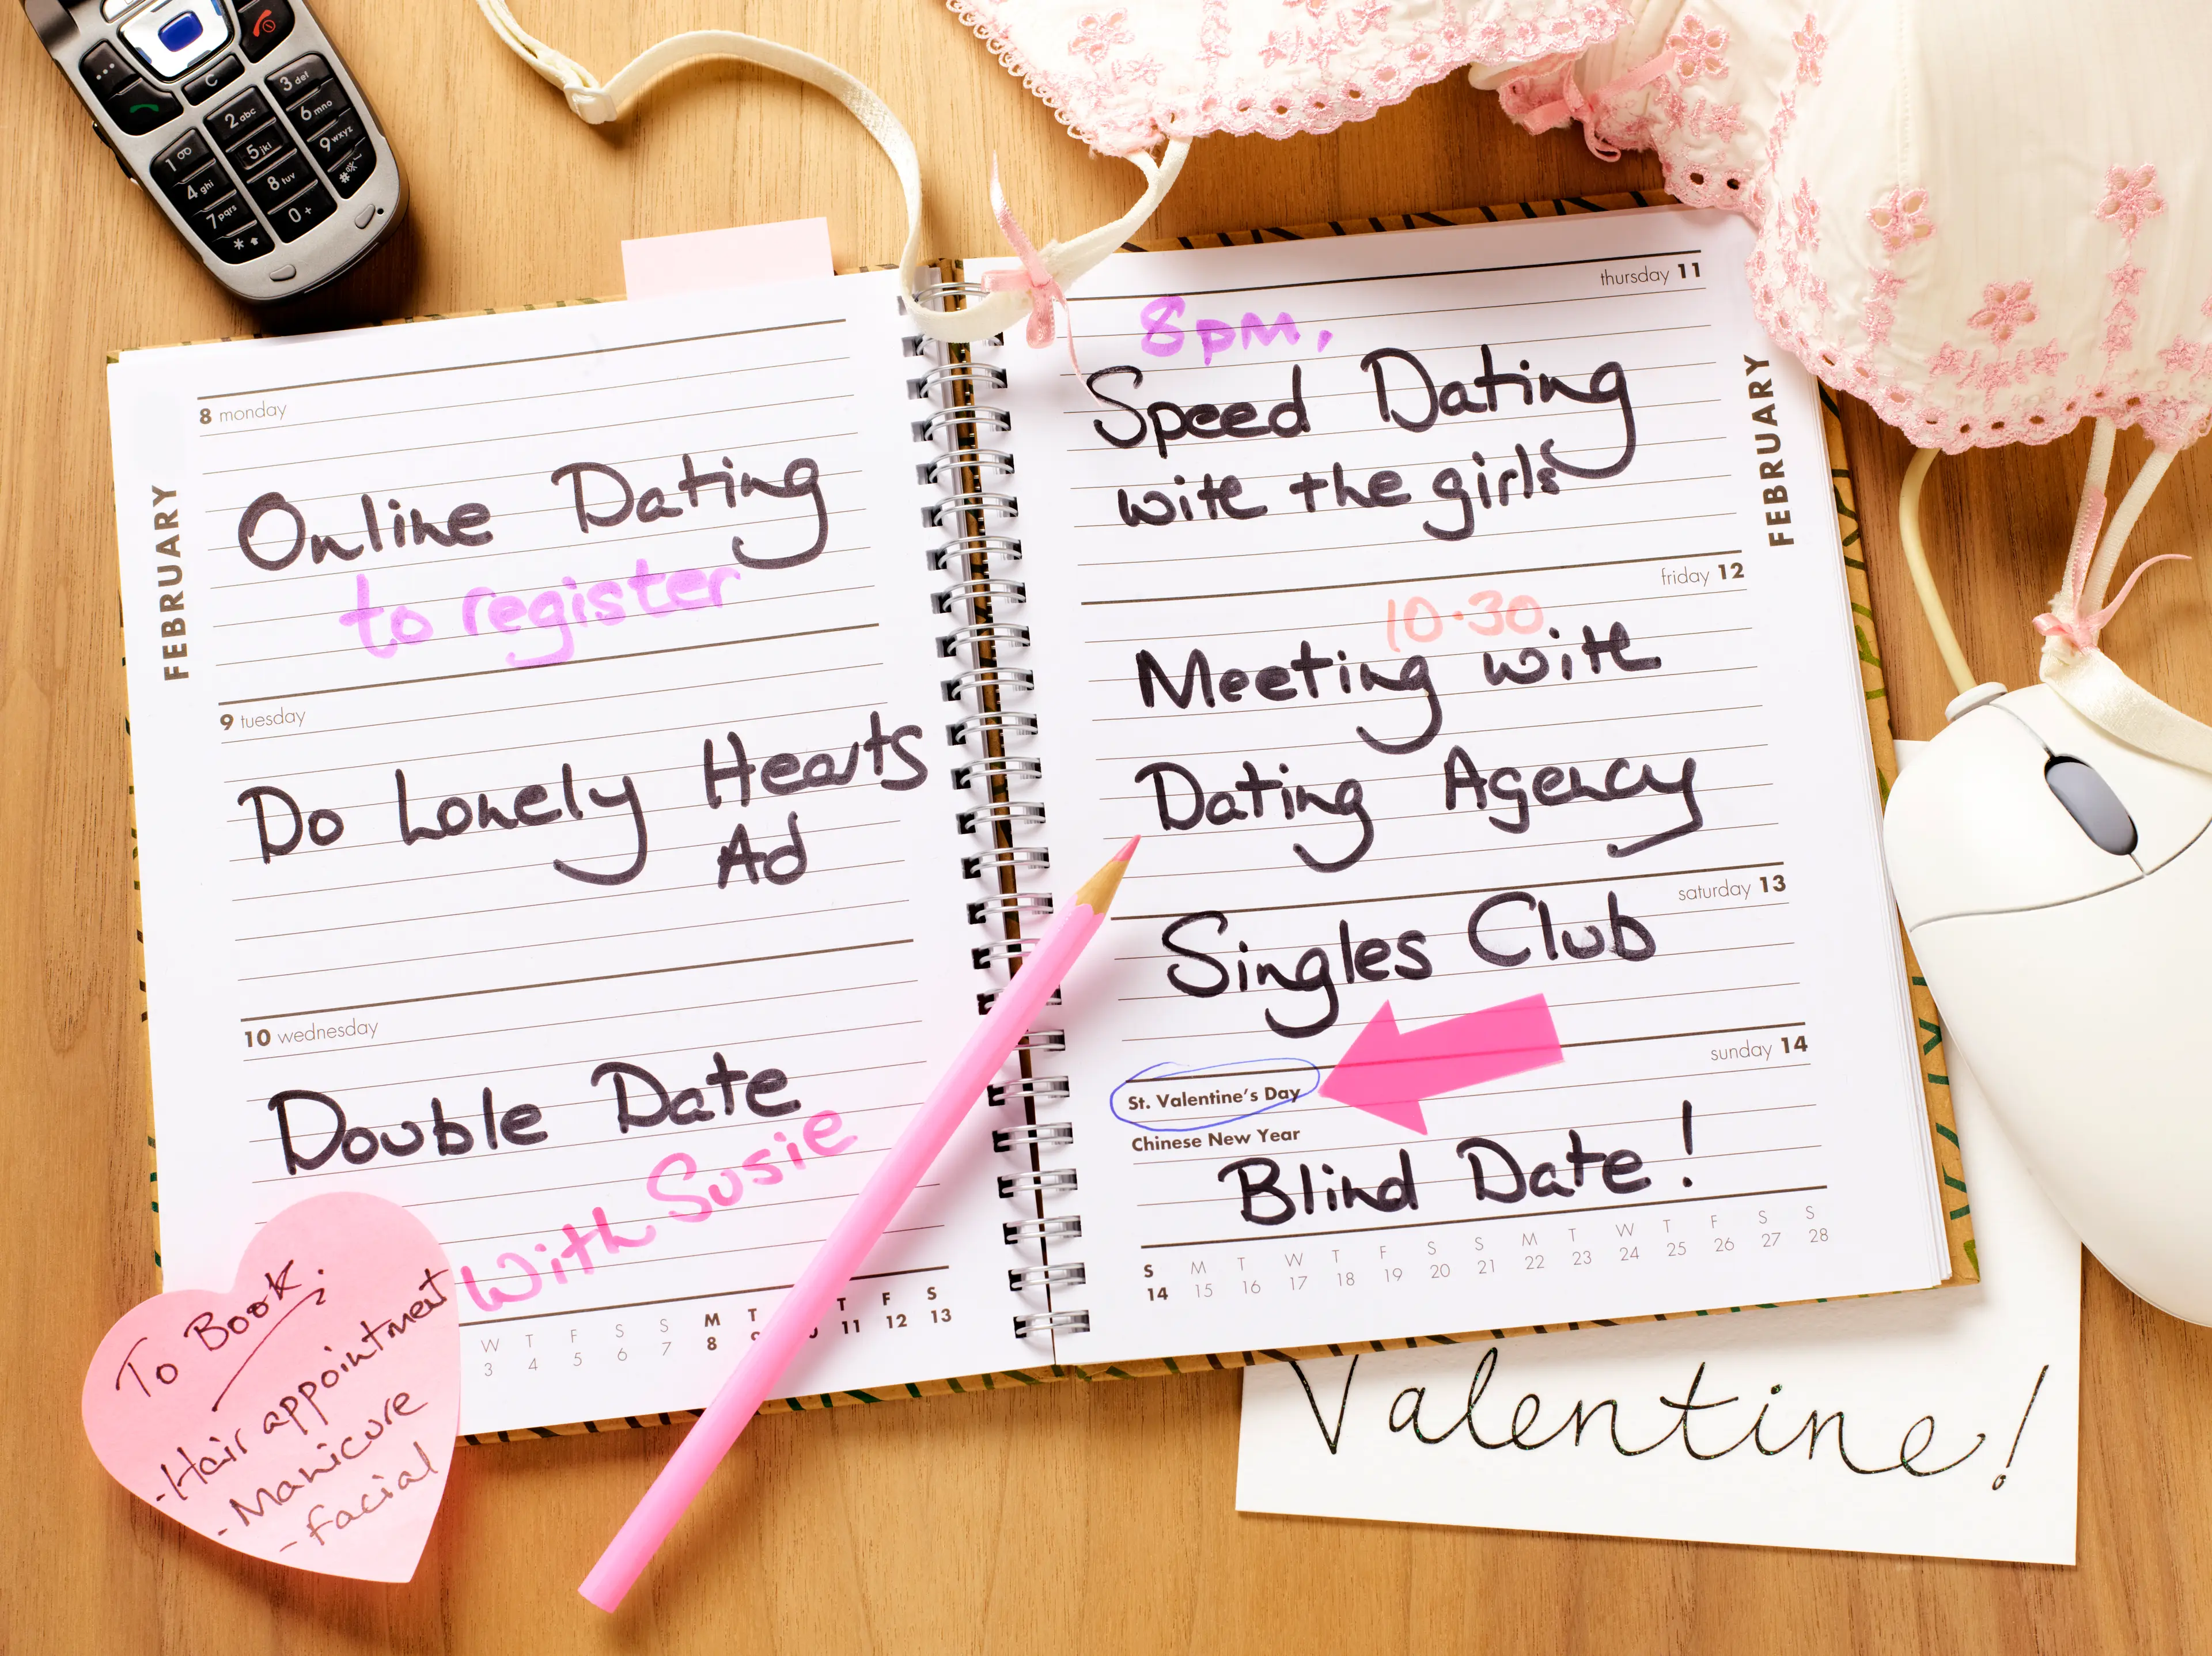 C
1
2 abc
3 def
4 ghi
5 jkl
6 mno
7 pqrs
8 tuv
9 wxyz
*
0 +
#
FEBRUARY
8 monday
Online Dating
to register
9 tuesday
Do Lonely Hearts
Ad
10 wednesday
Double Date
with Susie
W T F S S M T T F S
3 4 5 6 7 8 11 12 13
To Book:
- Hair appointment
- Manicure
- facial
FEBRUARY
thursday 11
8pm,
Speed Dating
with the girls
friday 12
10.30
Meeting with
Dating Agency
saturday 13
Singles Club
sunday 14
St. Valentine's Day
Chinese New Year
Blind Date!
S M T W T F S S M T W T F S S
14 15 16 17 18 19 20 21 22 23 24 25 26 27 28
Valentine!